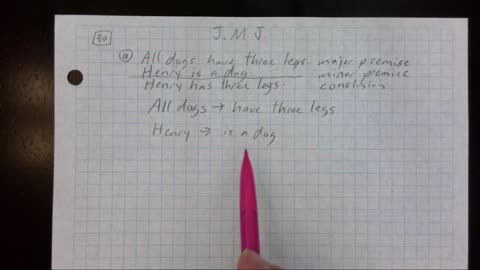 30
J.M J
a All dogs have three legs major premise
Henry is a dog minor premise
Henry has three legs. conclusion
All dogs → have three legs
Henry → is a dog